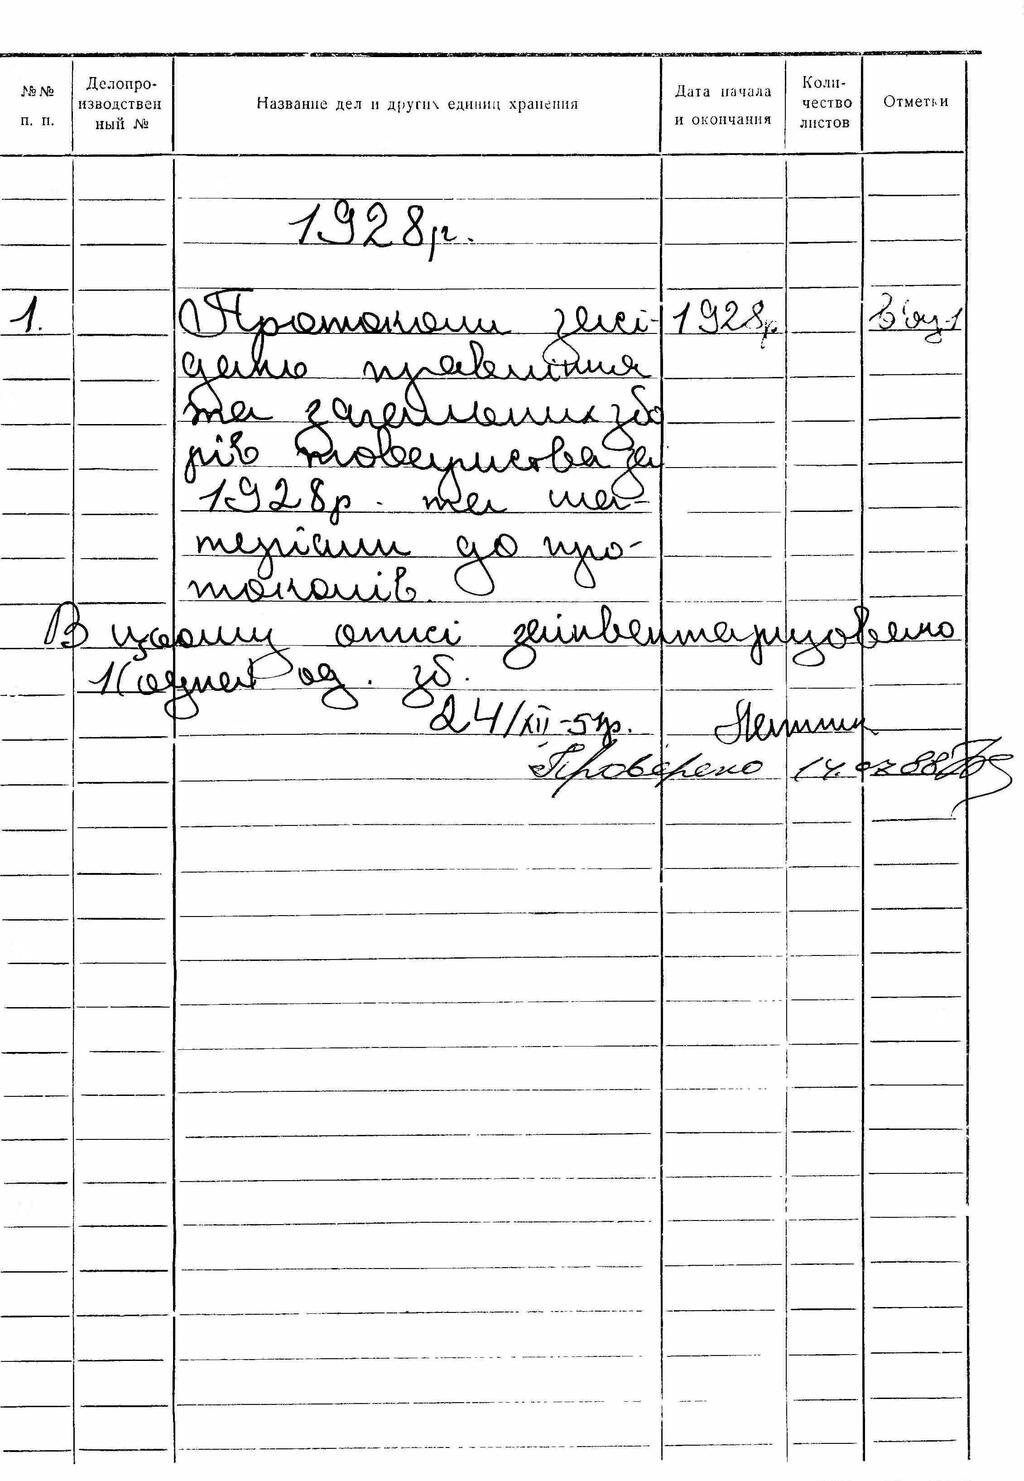 №№ п. п.
Делопро-изводствен ный №
Название дел и других единиц хранения
Дата начала и окончания
Коли-чество листов
Отметки
1928р.
1. Протоколи засі- 1928р. в'яз-1
дань правління
та загальних збо
рів товариства за
1928р. та ма-
теріали до про-
токолів.
В цьому описі заінвентаризовано
1(одна) од. зб.
24/XII-51р.
Проверено 14.07.88